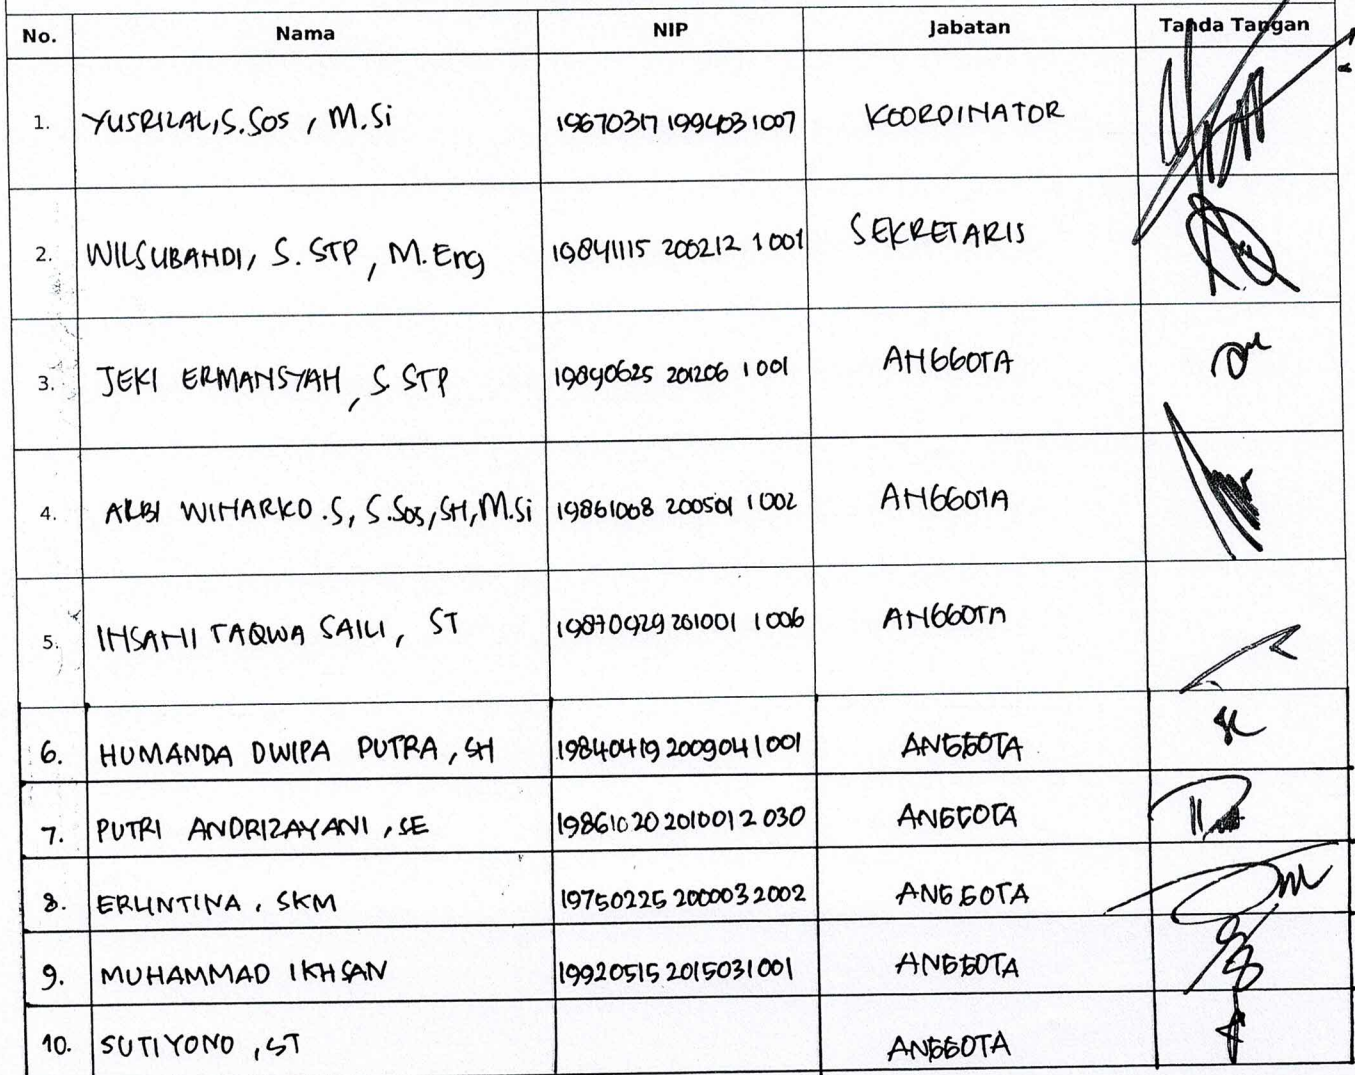 No. Nama NIP Jabatan Tanda Tangan
1. YUSRIZAL, S.Sos , M.Si 19670317 199403 1007 KOORDINATOR
2. WILSUBANDI, S. STP, M.Eng 19841115 200212 1 001 SEKRETARIS
3. JEKI ERMANSYAH, S STP 19890625 201206 1 001 ANGGOTA
4. ARBI WINARKO .S, S.Sos, SH, M.Si 19861008 200501 1 002 ANGGOTA
5. IHSANI TAQWA SAILI, ST 19870929 201001 1 006 ANGGOTA
6. HUMANDA DWIPA PUTRA, SH 19840419 200904 1 001 ANGGOTA
7. PUTRI ANDRIZAYANI, SE 19861020 201001 2 030 ANGGOTA
8. ERLINTINA, SKM 19750225 200003 2002 ANGGOTA
9. MUHAMMAD IKHSAN 19920515 201503 1 001 ANGGOTA
10. SUTIYONO, ST ANGGOTA